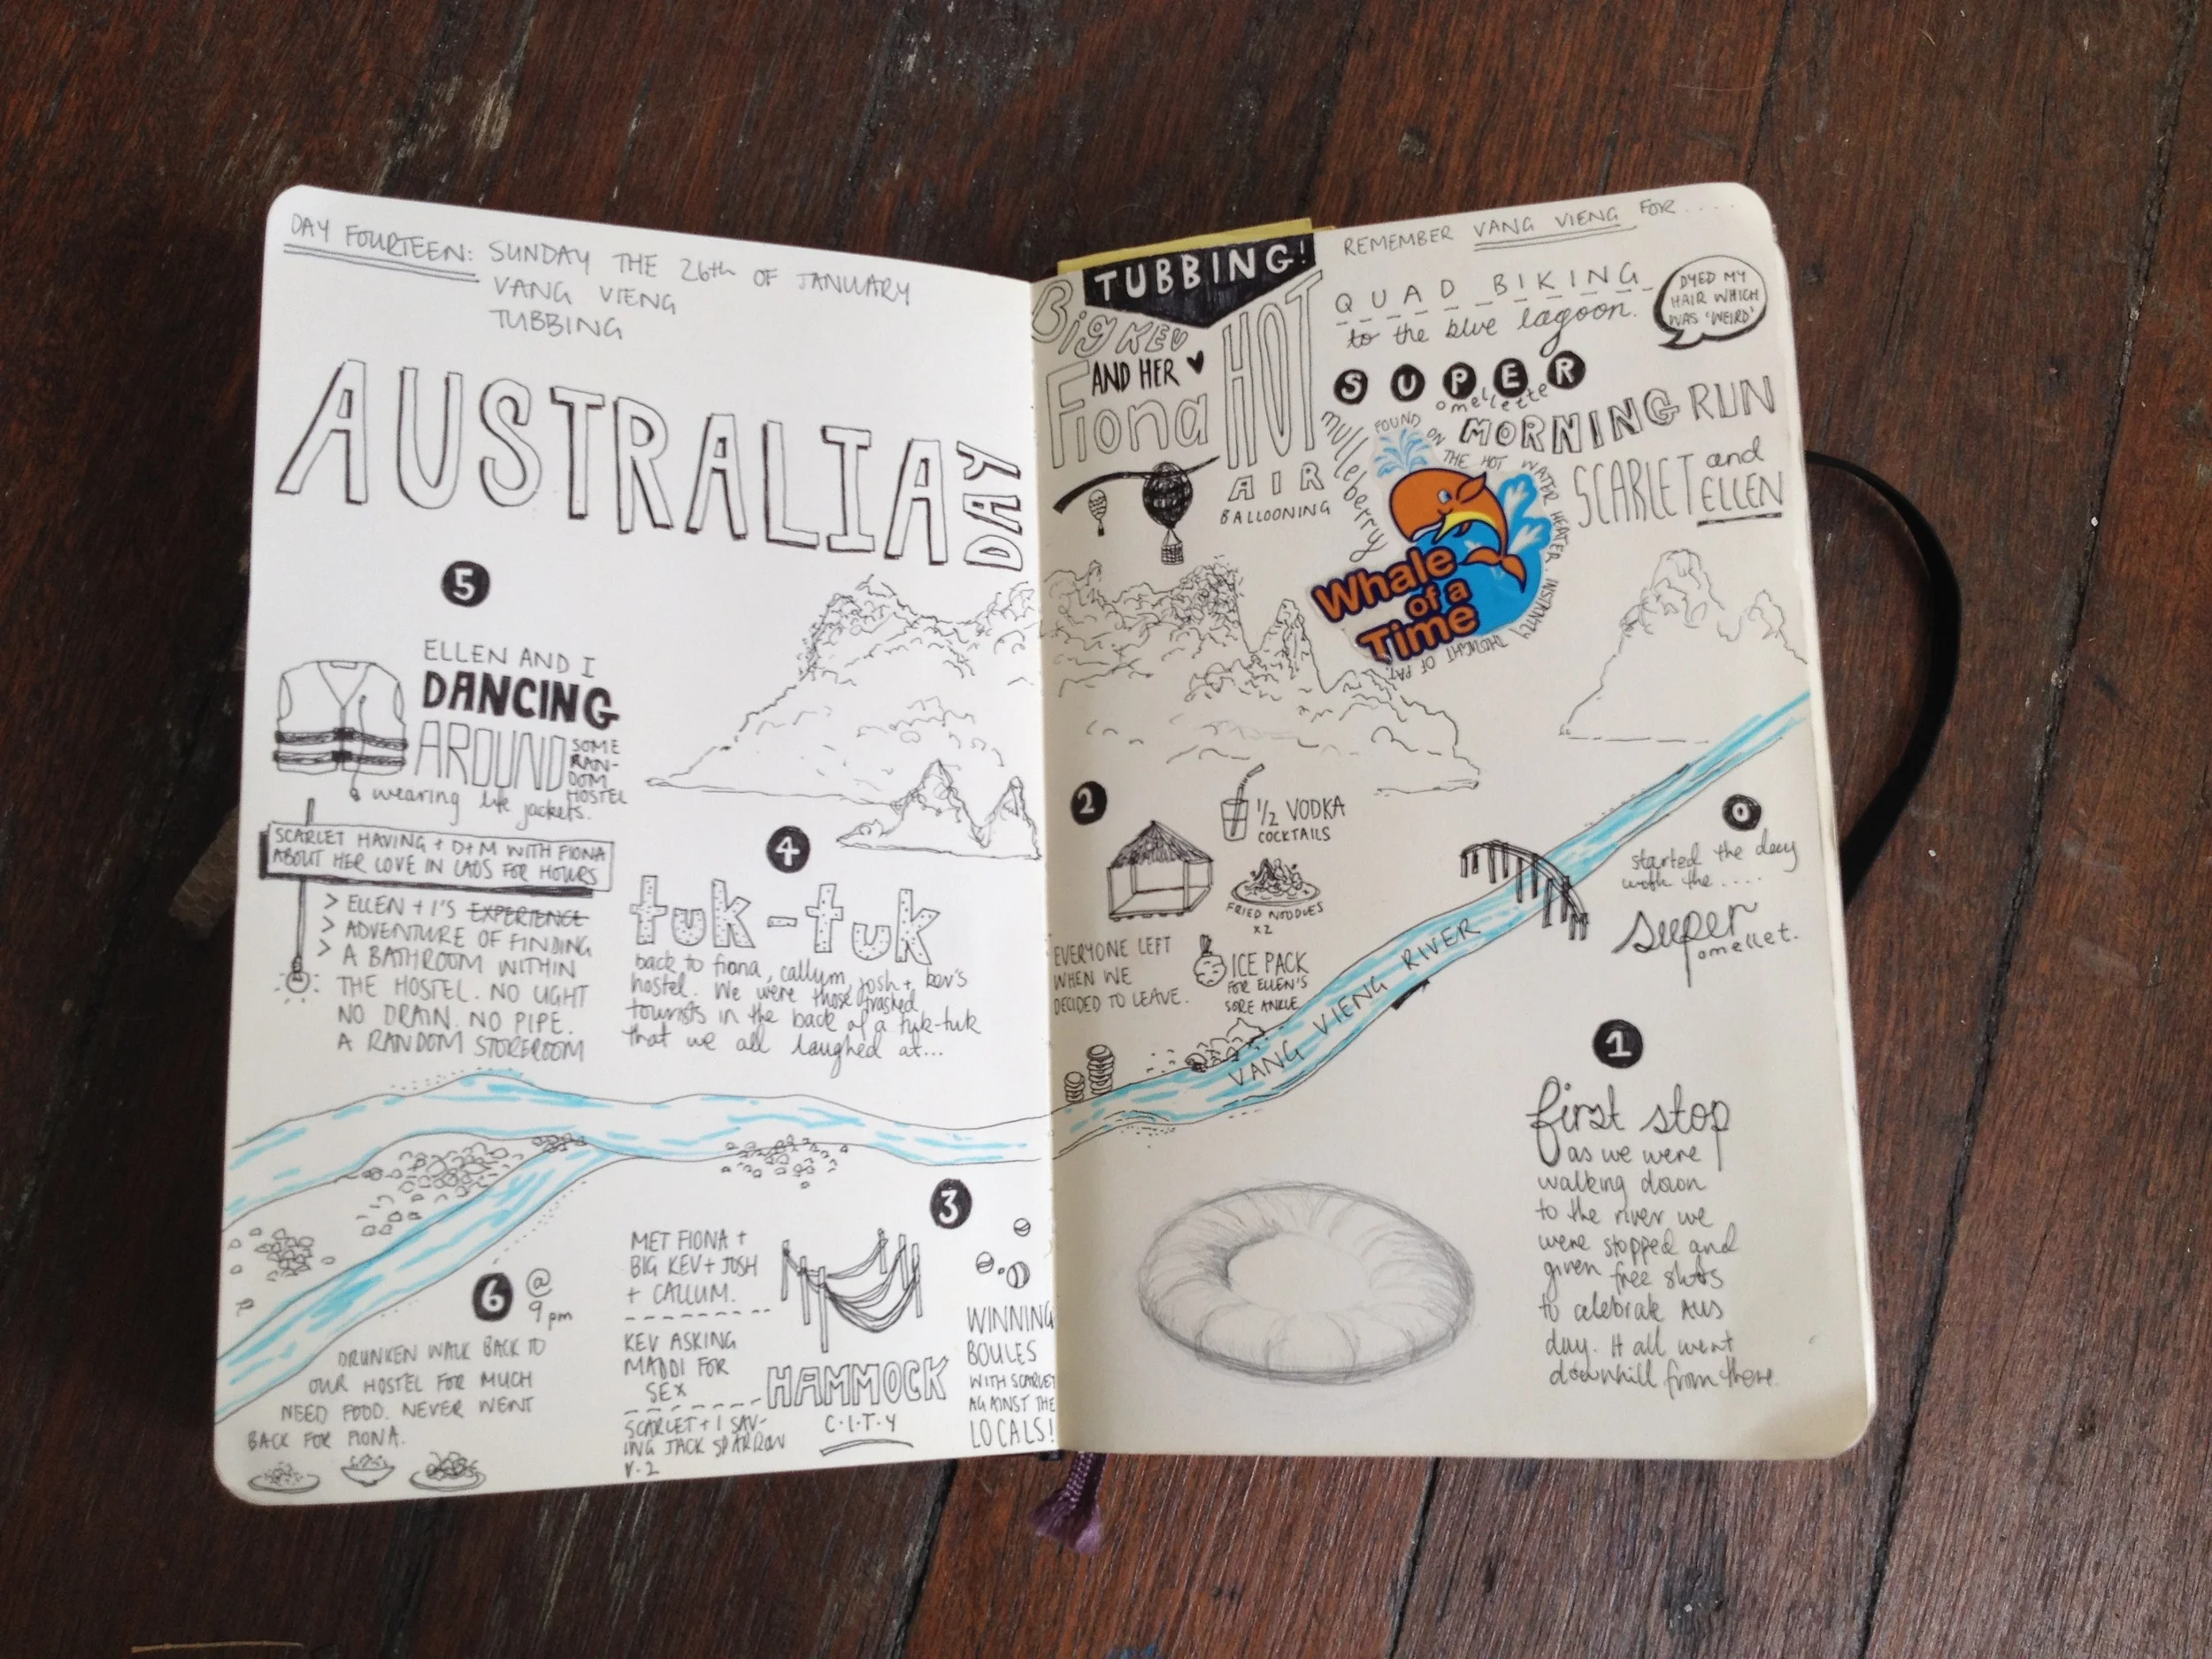 DAY FOURTEEN: SUNDAY THE 26th OF JANUARY
VANG VIENG
TUBBING
AUSTRALIA
DAY
5
ELLEN AND I
DANCING
AROUND
SOME
RAN-
DOM
HOSTEL
wearing life jackets.
SCARLET HAVING + D+M WITH FIONA
ABOUT HER LOVE IN LAOS FOR HOURS
> ELLEN + I'S EXPERIENCE
> ADVENTURE OF FINDING
> A BATHROOM WITHIN
THE HOSTEL. NO LIGHT
NO DRAIN. NO PIPE.
A RANDOM STOREROOM
4
tuk-tuk
back to fiona, callum, josh + kev's
hostel. We were those trashed
tourists in the back of a tuk-tuk
that we all laughed at...
6
@
9pm
DRUNKEN WALK BACK TO
OUR HOSTEL FOR MUCH
NEED FOOD. NEVER WENT
BACK FOR FIONA.
3
MET FIONA +
BIG KEV + JOSH
+ CALLUM.
KEV ASKING
MADDI FOR
SEX
SCARLET + I SAV-
ING JACK SPARROW
V.2
HAMMOCK
C.I.T.Y
WINNING
BOULES
WITH SCARLET
AGAINST THE
LOCALS!
TUBBING!
Big KEV
AND HER
Fiona
HOT
AIR
BALLOONING
REMEMBER VANG VIENG FOR .....
QUAD BIKING
to the blue lagoon.
DYED MY
HAIR WHICH
WAS 'WEIRD'
SUPER
omellette
MORNING RUN
SCARLET and
ELLEN
mulleberry
FOUND ON THE HOT WATER HEATER. INSTANTLY THOUGHT OF PAT.
Whale
of a
Time
2
1/2 VODKA
COCKTAILS
FRIED NOODLES
x2
EVERYONE LEFT
WHEN WE
DECIDED TO LEAVE.
ICE PACK
FOR ELLEN'S
SORE ANKLE
VANG VIENG RIVER
0
started the day
with the ....
super
omellet.
1
first stop
as we were
walking down
to the river we
were stopped and
given free shots
to celebrate AUS
day. It all went
downhill from there.